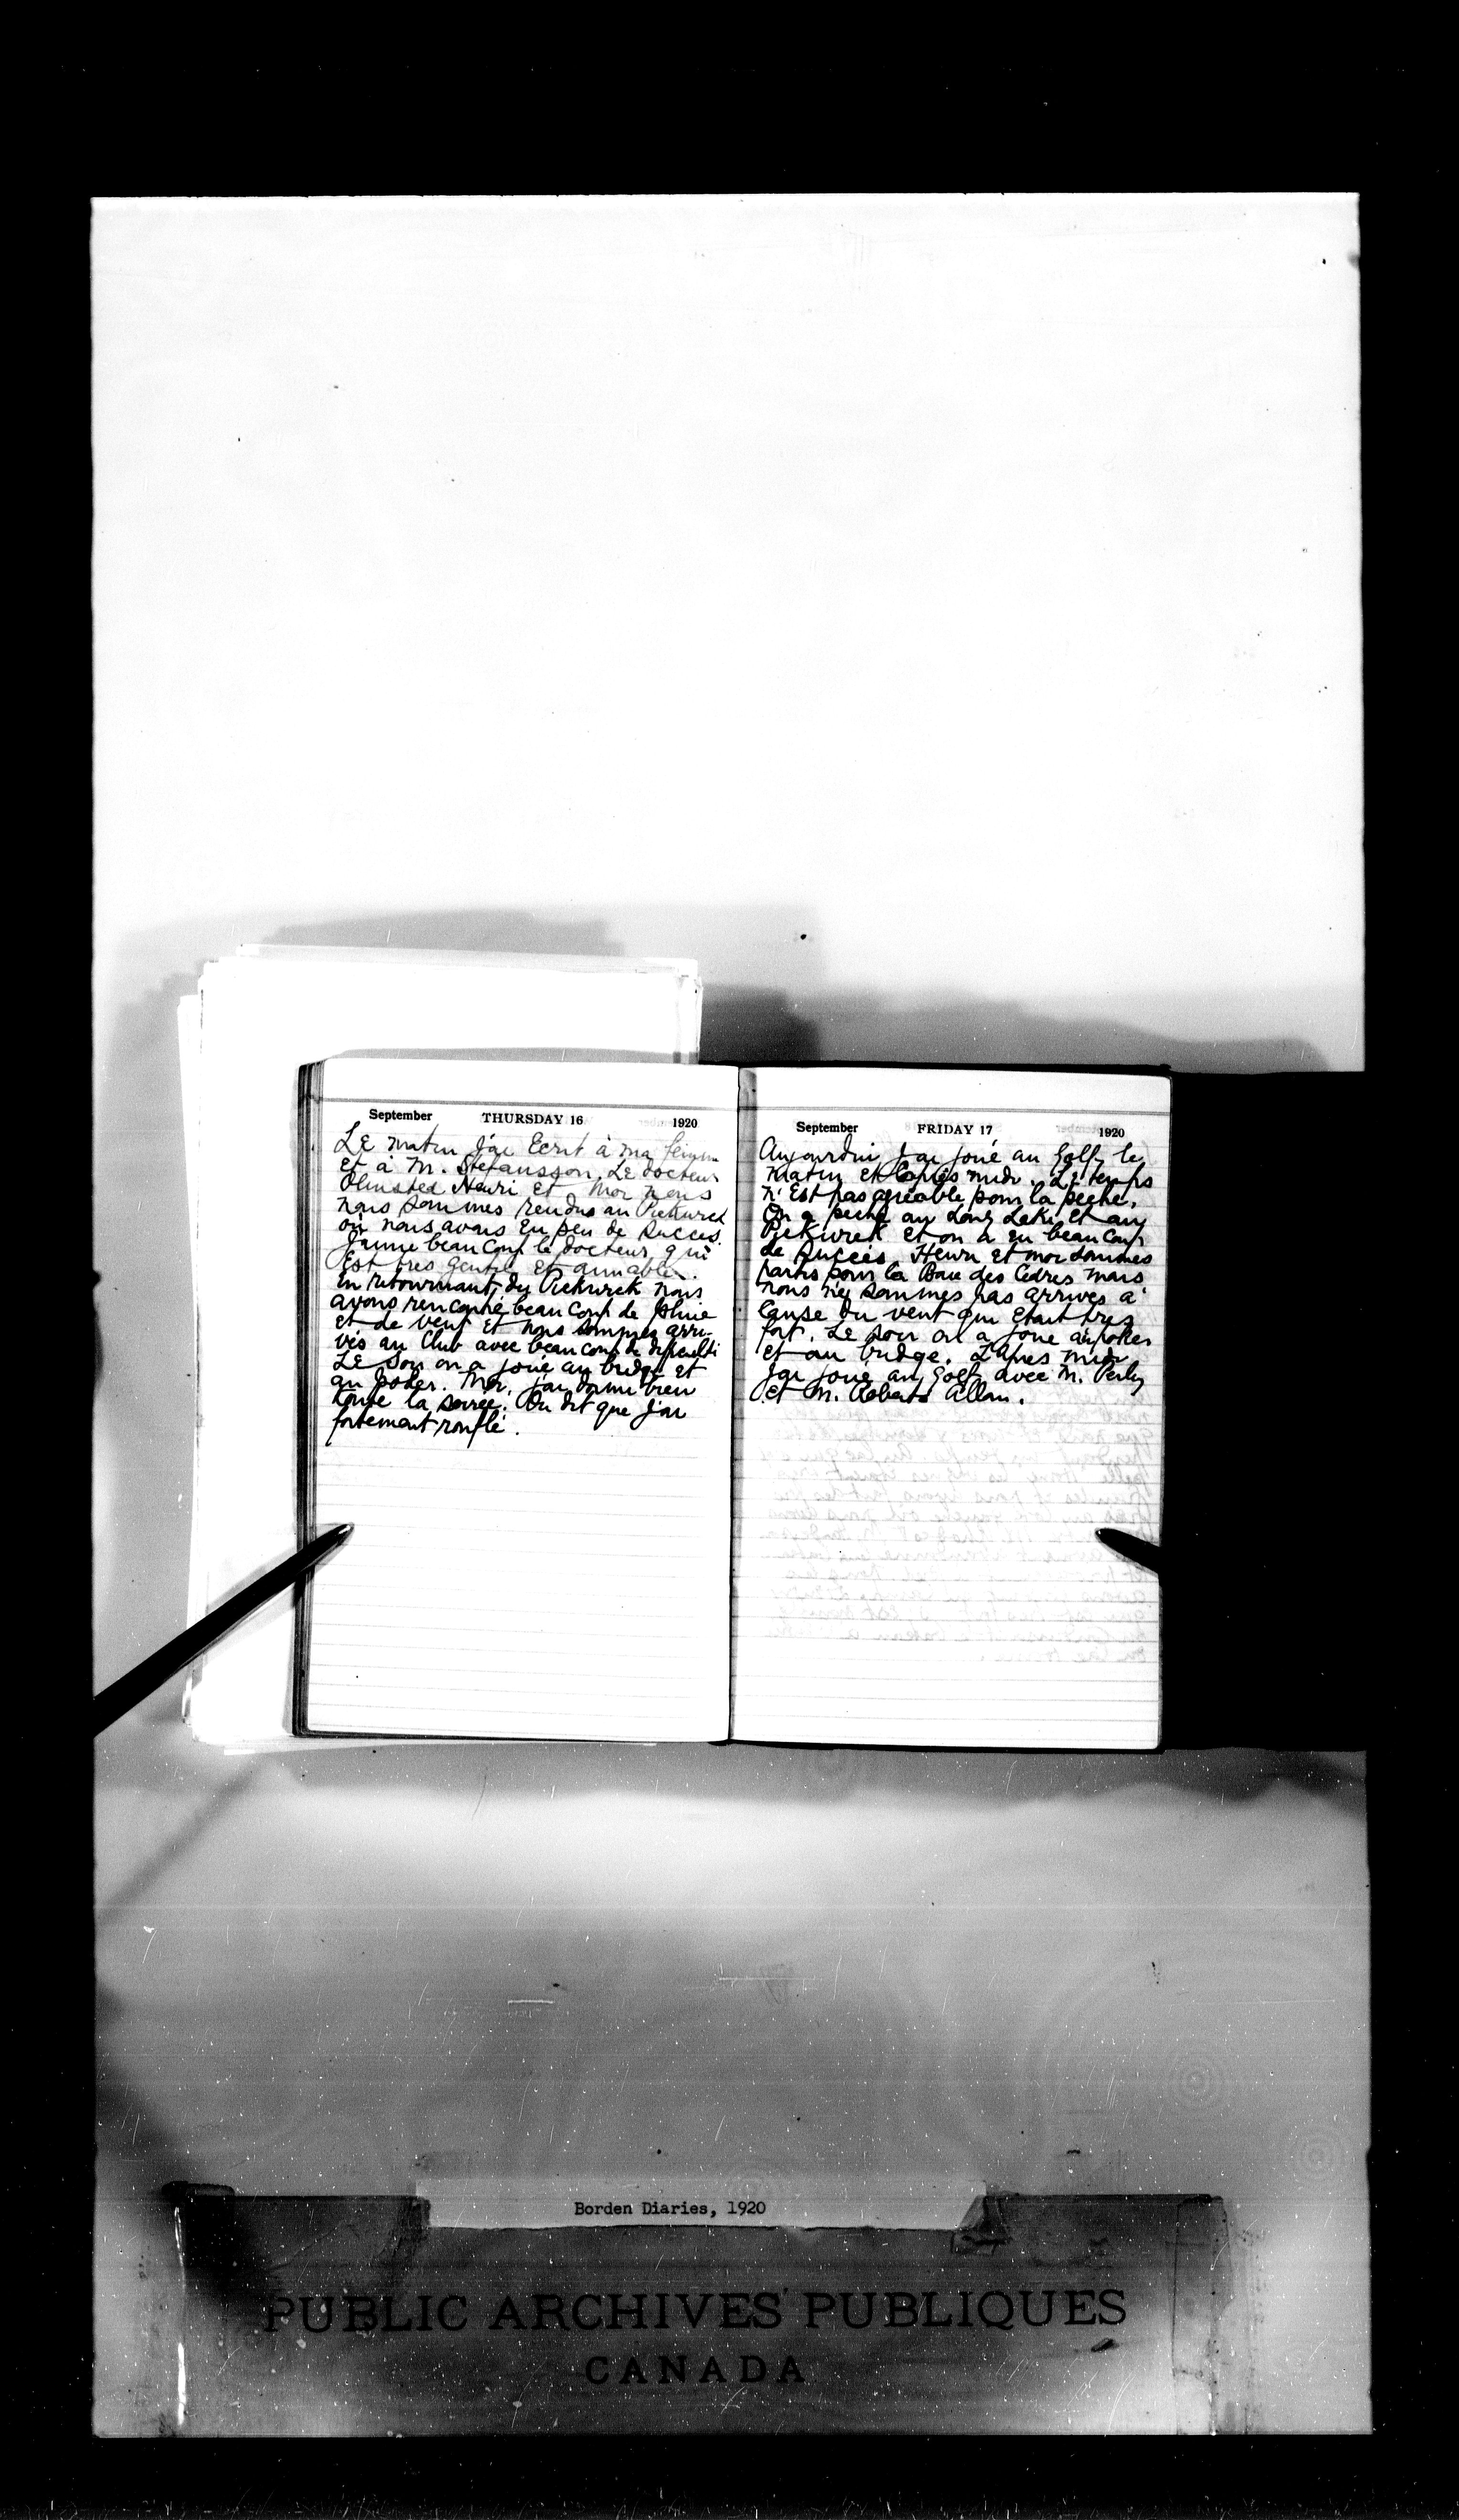 September THURSDAY 16 1920
Le matin j'ai écrit à ma femme
et à M. Stefansson. Le docteur
Olmsted Henri et moi nous
nous sommes rendus au Pickwick
où nous avons eu peu de succès.
J'aime beaucoup le docteur qui
est très gentil et aimable.
En retournant du Pickwick nous
avons rencontré beaucoup de pluie
et de vent et nous sommes arri-
vés au Club avec beaucoup de difficulté
Le soir on a joué au bridge et
au poker. Moi, j'ai dormi bien
toute la soirée. On dit que j'ai
fortement ronflé.
September FRIDAY 17 1920
Aujourdui j'ai joué au golf le
matin et l'après midi. Le temps
n'est pas agréable pour la pêche.
On a pêché au Long Lake et au
Pickwick et on a eu beaucoup
de succès. Henri et moi sommes
partis pour la Baie des Cèdres mais
nous n'y sommes pas arrivés à
cause du vent qui était très
fort. Le soir on a joué au poker
et au bridge. L'après midi
j'ai joué au golf avec M. Perley
et M. Roberts Allan.
Borden Diaries, 1920
PUBLIC ARCHIVES PUBLIQUES
CANADA